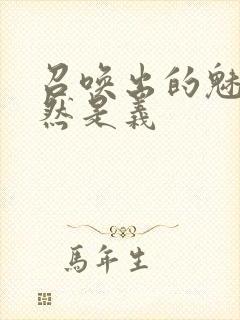 召唤出的魅
然是义
馬年生